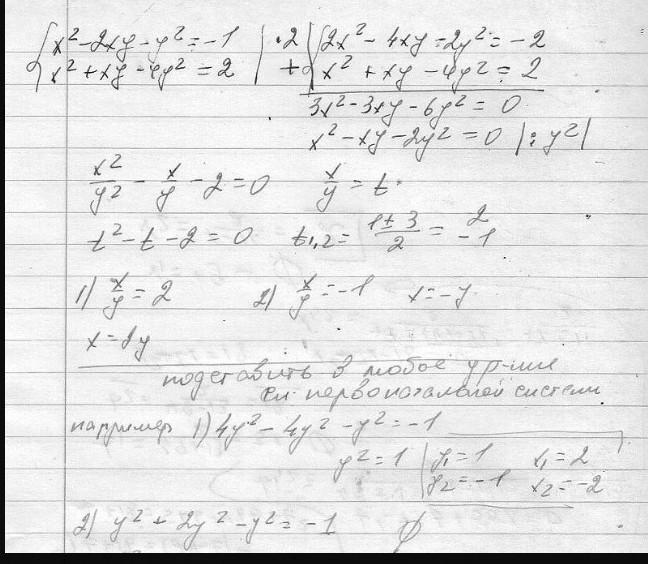 x² - 2xy - y² = -1 | ·2 | 2x² - 4xy = 2y² = -2
x² + xy - 4y² = 2 | + x² + xy - 4y² = 2
3x² - 3xy - 6y² = 0
x² - xy - 2y² = 0 | : y² |
x²/y² - x/y - 2 = 0 x/y = t
t² - t - 2 = 0 t₁,₂ = (1 ± 3)/2 = 2 -1
1) x/y = 2 2) x/y = -1 x = -y
x = 2y
подставить в любое ур-ние
первоначальной системы
например 1) 4y² - 4y² - y² = -1
y² = 1 | y₁ = 1 x₁ = 2
y₂ = -1 x₂ = -2
2) y² + 2y² - y² = -1 ∅